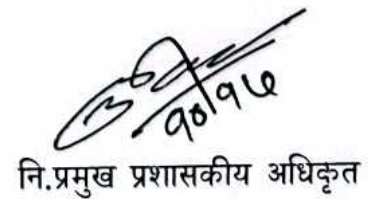 १०/१५
नि.प्रमुख प्रशासकीय अधिकृत